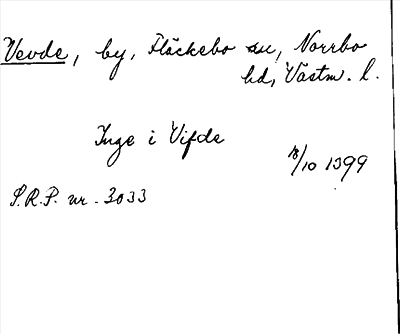 Vevde, by, Fläckebo sn, Norrbo
hd, Västm. l.
Inge i Vifde
18/10 1399
S.R.P. nr. 3033